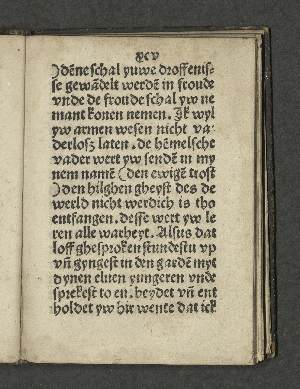 xcv
) dēne schal yuwe droffenis-
se gewādelt werdē in froude
vnde de froude schal yw ne
mant konen nemen. Ik wyl
yw armen wesen nicht va-
derlosz laten. de hēmelsche
vader wert yw sendē in my
nem namē (den ewigē trost
) den hilghen gheyst des de
werld nicht werdich is tho
entfangen. desse wert yw le
ren alle warheyt. Alsus dat
loff ghesproken stundestu vp
vn̄ gyngest in den gardē myt
dynen eluen yungeren vnde
sprekest to en. beydet vn̄ ent
holdet yw hir wente dat ick